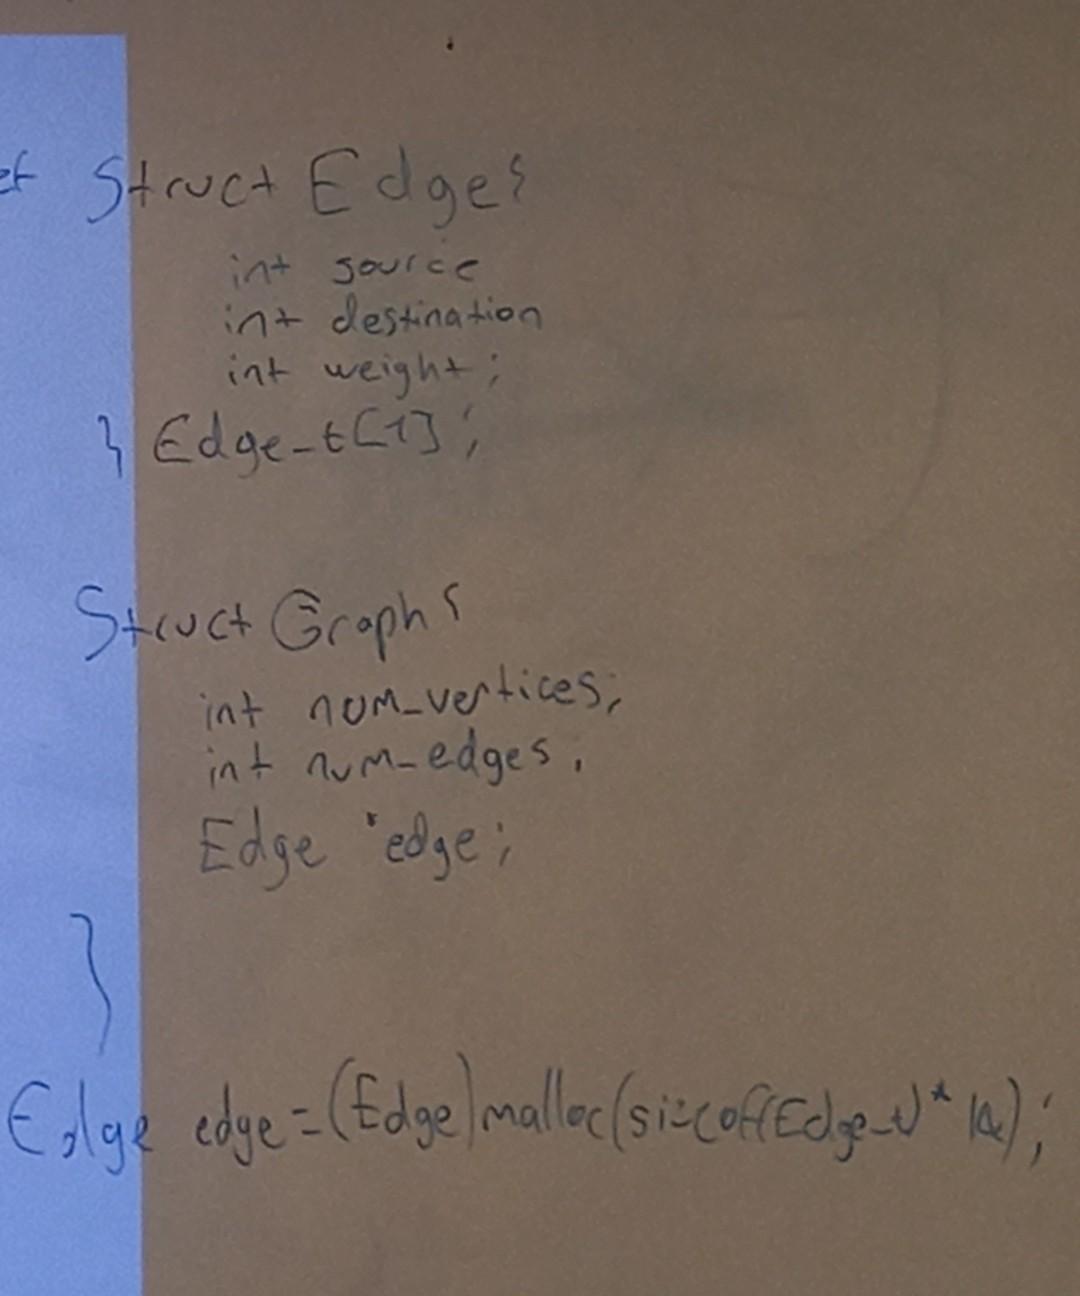 ef Struct Edge{
int source
int destination
int weight;
} Edge_t[1];
Struct Graph{
int num_vertices;
int num_edges.
Edge *edge;
}
Edge edge = (Edge)malloc(sizeof(Edge_t)*